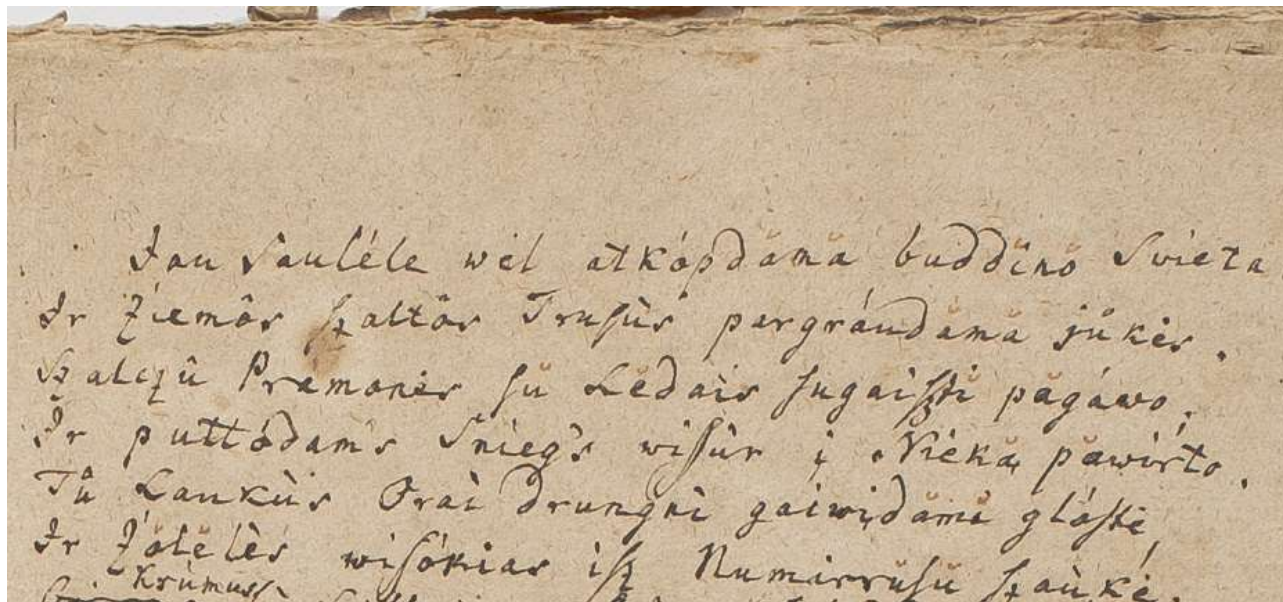 Jau Sauléle wėl atkópdămă buddĭnŏ Svieta
Ir Źiemôs ſzaltôs Truſùs pargráudămă jůkės.
Szalczû Pramonės ſŭ Lĕdais ſugaiſzti păgáwo,
Ir puttódams Sniegs wiſùr į Nieką păwirto.
Tŭ Laukùs Orai drungni gaiwįdămi glóſtė,
Ir Źŏlĕlės wiſókias iſz Numirruſŭ ſzaùkė.
Krùmuſſ